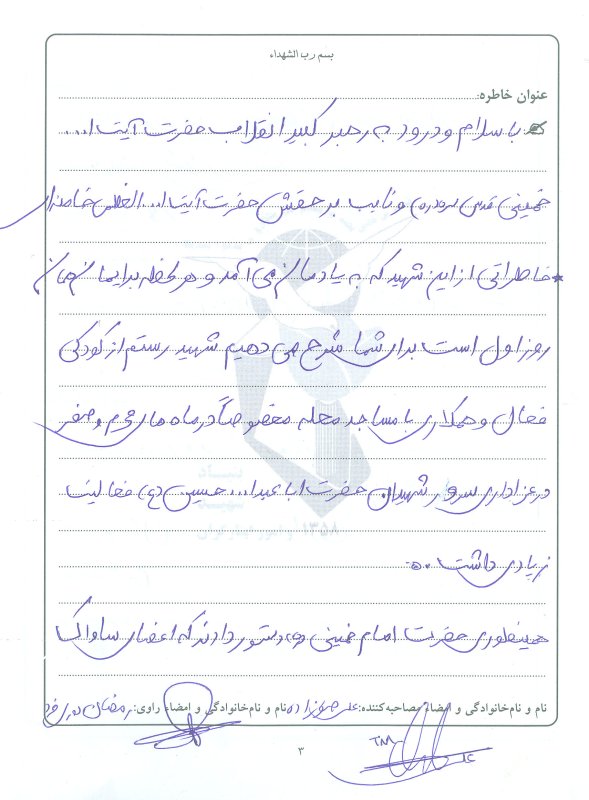 بسم رب الشهداء
عنوان خاطره:
با سلام و درود به رهبر کبیر انقلاب حضرت آیت ا...
خمینی قدس سره و نایب بر حقش حضرت آیت ا... العظمی خامنه‌ای
خاطراتی از این شهید که به یادمان می آمد و هر لحظه برایمان همان
روز اول است برای شما شرح می دهیم شهید رستم از کودکی
فعال و همکاری با مساجد محله مخصوصاً در ماه های محرم و صفر
در عزاداری سرور شهیدان حضرت ابا عبدا... حسین (ع) فعالیت
زیادی داشت .
همینطوری حضرت امام خمینی (ره) دستور دادند که اعضای ساواک
نام و نام‌خانوادگی و امضاء مصاحبه‌کننده: علی نام و نام‌خانوادگی و امضاء راوی: رمضان
۳